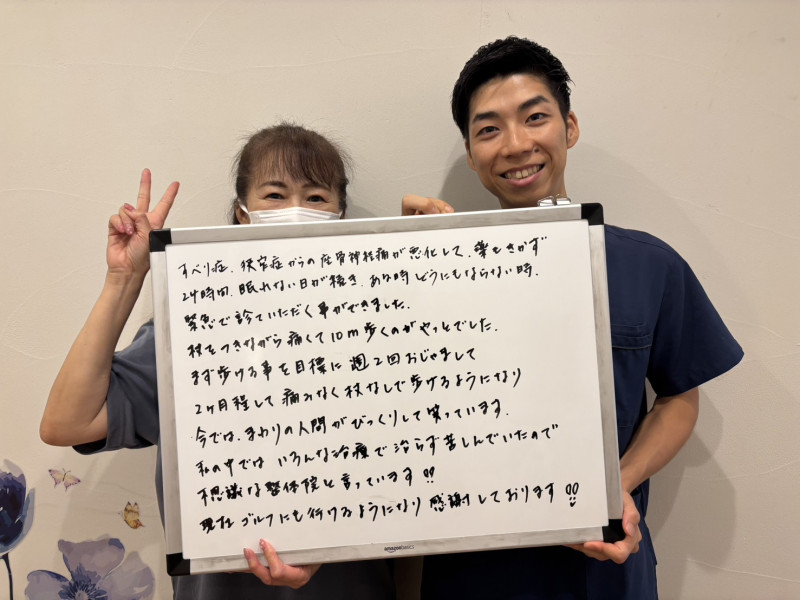 すべり症、狭窄症からの座骨神経痛が悪化して、薬もきかず
24時間、眠れない日が続き、あの時どうにもならない時、
緊急で診ていただく事ができました。
杖をつきながら痛くて10m歩くのがやっとでした。
まず歩ける事を目標に週2回おじゃまして
2ヶ月程して痛みなく杖なしで歩けるようになり
今では、まわりの人間がびっくりして笑っています。
私の中では いろんな治療で治らず苦しんでいたので
不思議な整体院と言っています!!
現在ゴルフにも行けるようになり 感謝しております!!
amazonbasics